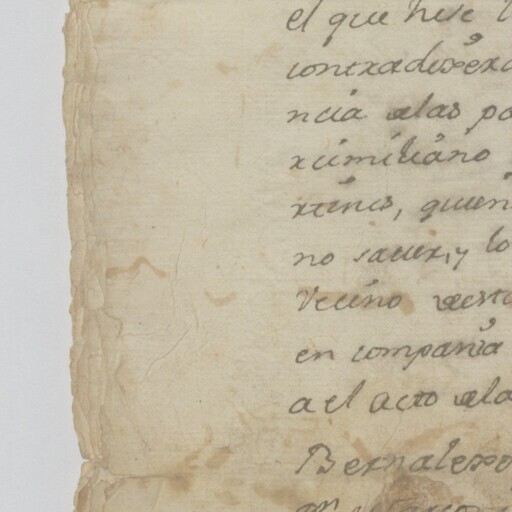 el que hise
contradixera
ncia alas pa
ximiliano
rtines, quien
no saver, y lo
Vecino desta
en compania
a el acto dela
Bernalexo